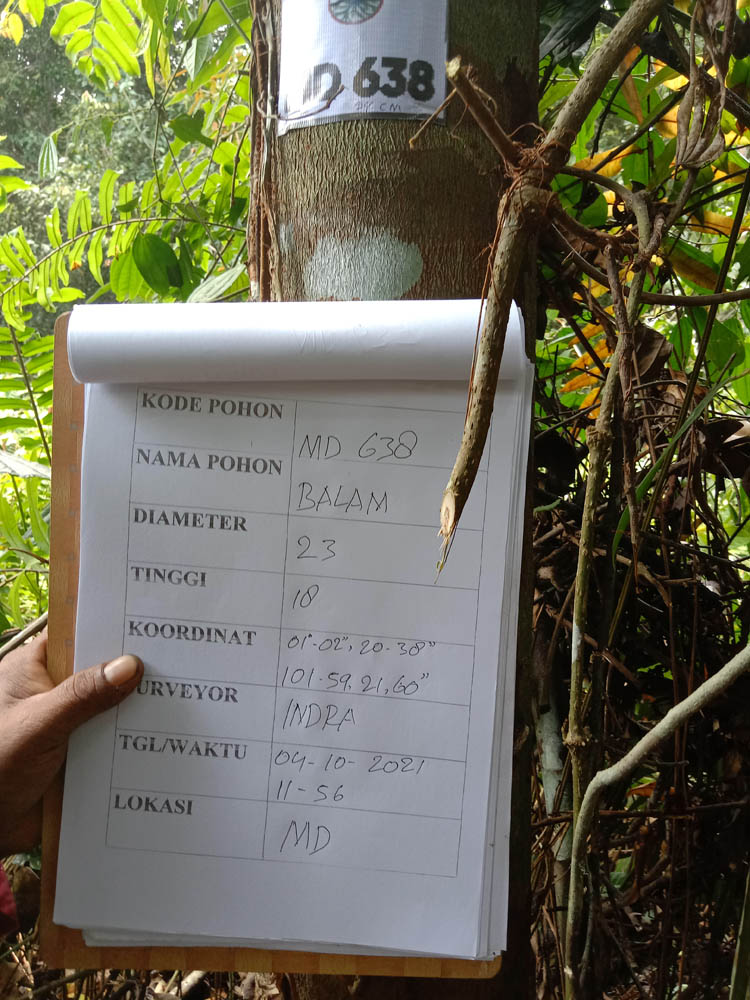 D 638
KODE POHON MD 638
NAMA POHON BALAM
DIAMETER 23
TINGGI 18
KOORDINAT 01°-02", 20-38"
101-59, 21,60"
URVEYOR INDRA
TGL/WAKTU 04-10-2021
11-56
LOKASI MD